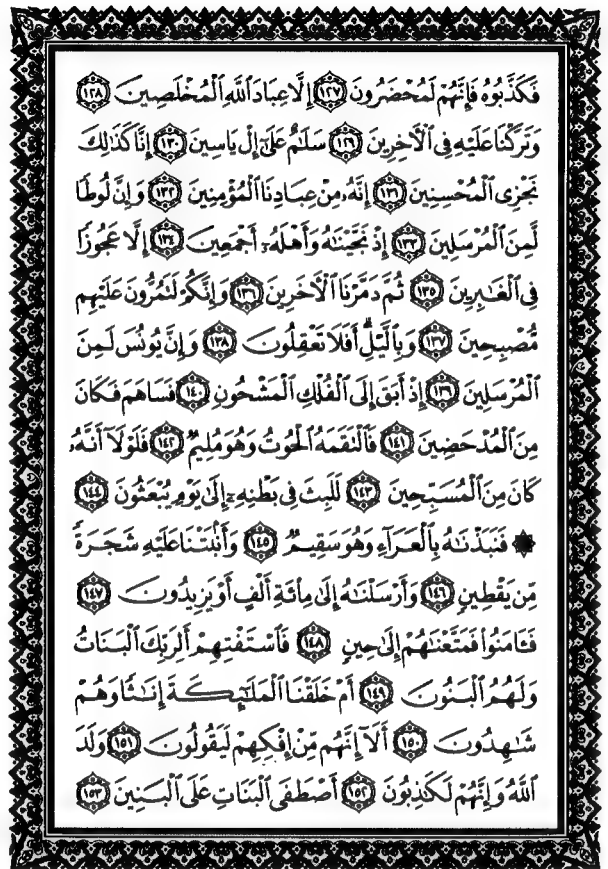 فَكَذَّبُوهُ فَإِنَّهُمْ لَمُحْضَرُونَ ﴿١٢٧﴾ إِلَّا عِبَادَ ٱللَّهِ ٱلْمُخْلَصِينَ ﴿١٢٨﴾
وَتَرَكْنَا عَلَيْهِ فِى ٱلْأَخِرِينَ ﴿١٢٩﴾ سَلَـٰمٌ عَلَىٰٓ إِلْ يَاسِينَ ﴿١٣٠﴾ إِنَّا كَذَٰلِكَ
نَجْزِى ٱلْمُحْسِنِينَ ﴿١٣١﴾ إِنَّهُۥ مِنْ عِبَادِنَا ٱلْمُؤْمِنِينَ ﴿١٣٢﴾ وَإِنَّ لُوطًا
لَّمِنَ ٱلْمُرْسَلِينَ ﴿١٣٣﴾ إِذْ نَجَّيْنَـٰهُ وَأَهْلَهُۥٓ أَجْمَعِينَ ﴿١٣٤﴾ إِلَّا عَجُوزًا
فِى ٱلْغَـٰبِرِينَ ﴿١٣٥﴾ ثُمَّ دَمَّرْنَا ٱلْأَخَرِينَ ﴿١٣٦﴾ وَإِنَّكُمْ لَتَمُرُّونَ عَلَيْهِم
مُّصْبِحِينَ ﴿١٣٧﴾ وَبِٱلَّيْلِ ۗ أَفَلَا تَعْقِلُونَ ﴿١٣٨﴾ وَإِنَّ يُونُسَ لَمِنَ
ٱلْمُرْسَلِينَ ﴿١٣٩﴾ إِذْ أَبَقَ إِلَى ٱلْفُلْكِ ٱلْمَشْحُونِ ﴿١٤٠﴾ فَسَاهَمَ فَكَانَ
مِنَ ٱلْمُدْحَضِينَ ﴿١٤١﴾ فَٱلْتَقَمَهُ ٱلْحُوتُ وَهُوَ مُلِيمٌ ﴿١٤٢﴾ فَلَوْلَآ أَنَّهُۥ
كَانَ مِنَ ٱلْمُسَبِّحِينَ ﴿١٤٣﴾ لَلَبِثَ فِى بَطْنِهِۦٓ إِلَىٰ يَوْمِ يُبْعَثُونَ ﴿١٤٤﴾
۞ فَنَبَذْنَـٰهُ بِٱلْعَرَآءِ وَهُوَ سَقِيمٌ ﴿١٤٥﴾ وَأَنۢبَتْنَا عَلَيْهِ شَجَرَةً
مِّن يَقْطِينٍ ﴿١٤٦﴾ وَأَرْسَلْنَـٰهُ إِلَىٰ مِا۟ئَةِ أَلْفٍ أَوْ يَزِيدُونَ ﴿١٤٧﴾
فَـَٔامَنُوا۟ فَمَتَّعْنَـٰهُمْ إِلَىٰ حِينٍ ﴿١٤٨﴾ فَٱسْتَفْتِهِمْ أَلِرَبِّكَ ٱلْبَنَاتُ
وَلَهُمُ ٱلْبَنُونَ ﴿١٤٩﴾ أَمْ خَلَقْنَا ٱلْمَلَـٰٓئِكَةَ إِنَـٰثًا وَهُمْ
شَـٰهِدُونَ ﴿١٥٠﴾ أَلَآ إِنَّهُم مِّنْ إِفْكِهِمْ لَيَقُولُونَ ﴿١٥١﴾ وَلَدَ
ٱللَّهُ وَإِنَّهُمْ لَكَـٰذِبُونَ ﴿١٥٢﴾ أَصْطَفَى ٱلْبَنَاتِ عَلَى ٱلْبَنِينَ ﴿١٥٣﴾